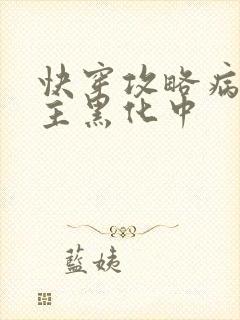 快穿攻略病
主黑化中
藍姨